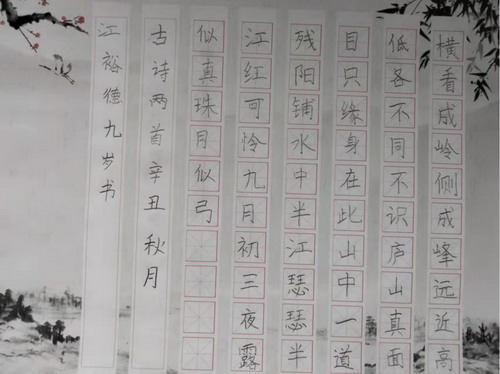 横看成岭侧成峰远近高
低各不同不识庐山真面
目只缘身在此山中一道
残阳铺水中半江瑟瑟半
江红可怜九月初三夜露
似真珠月似弓
古诗两首辛丑秋月
江裕德九岁书